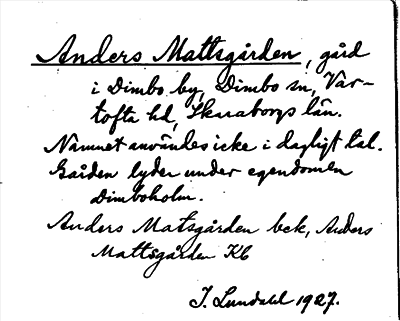 Anders Mattsgården, gård
i Dimbo by, Dimbo sn, Var-
tofta hd, Skaraborgs län.
Namnet användes icke i dagligt tal.
Gården lyder under egendomen
Dimboholm.
Anders Matsgården bck, Anders
Mattsgården Kb
I. Lundahl 1927.